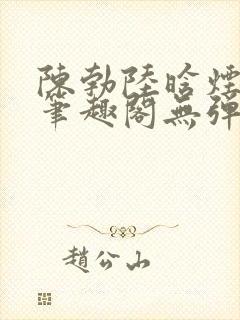 陳勃陸晗煙
筆趣閣無彈
趙公山